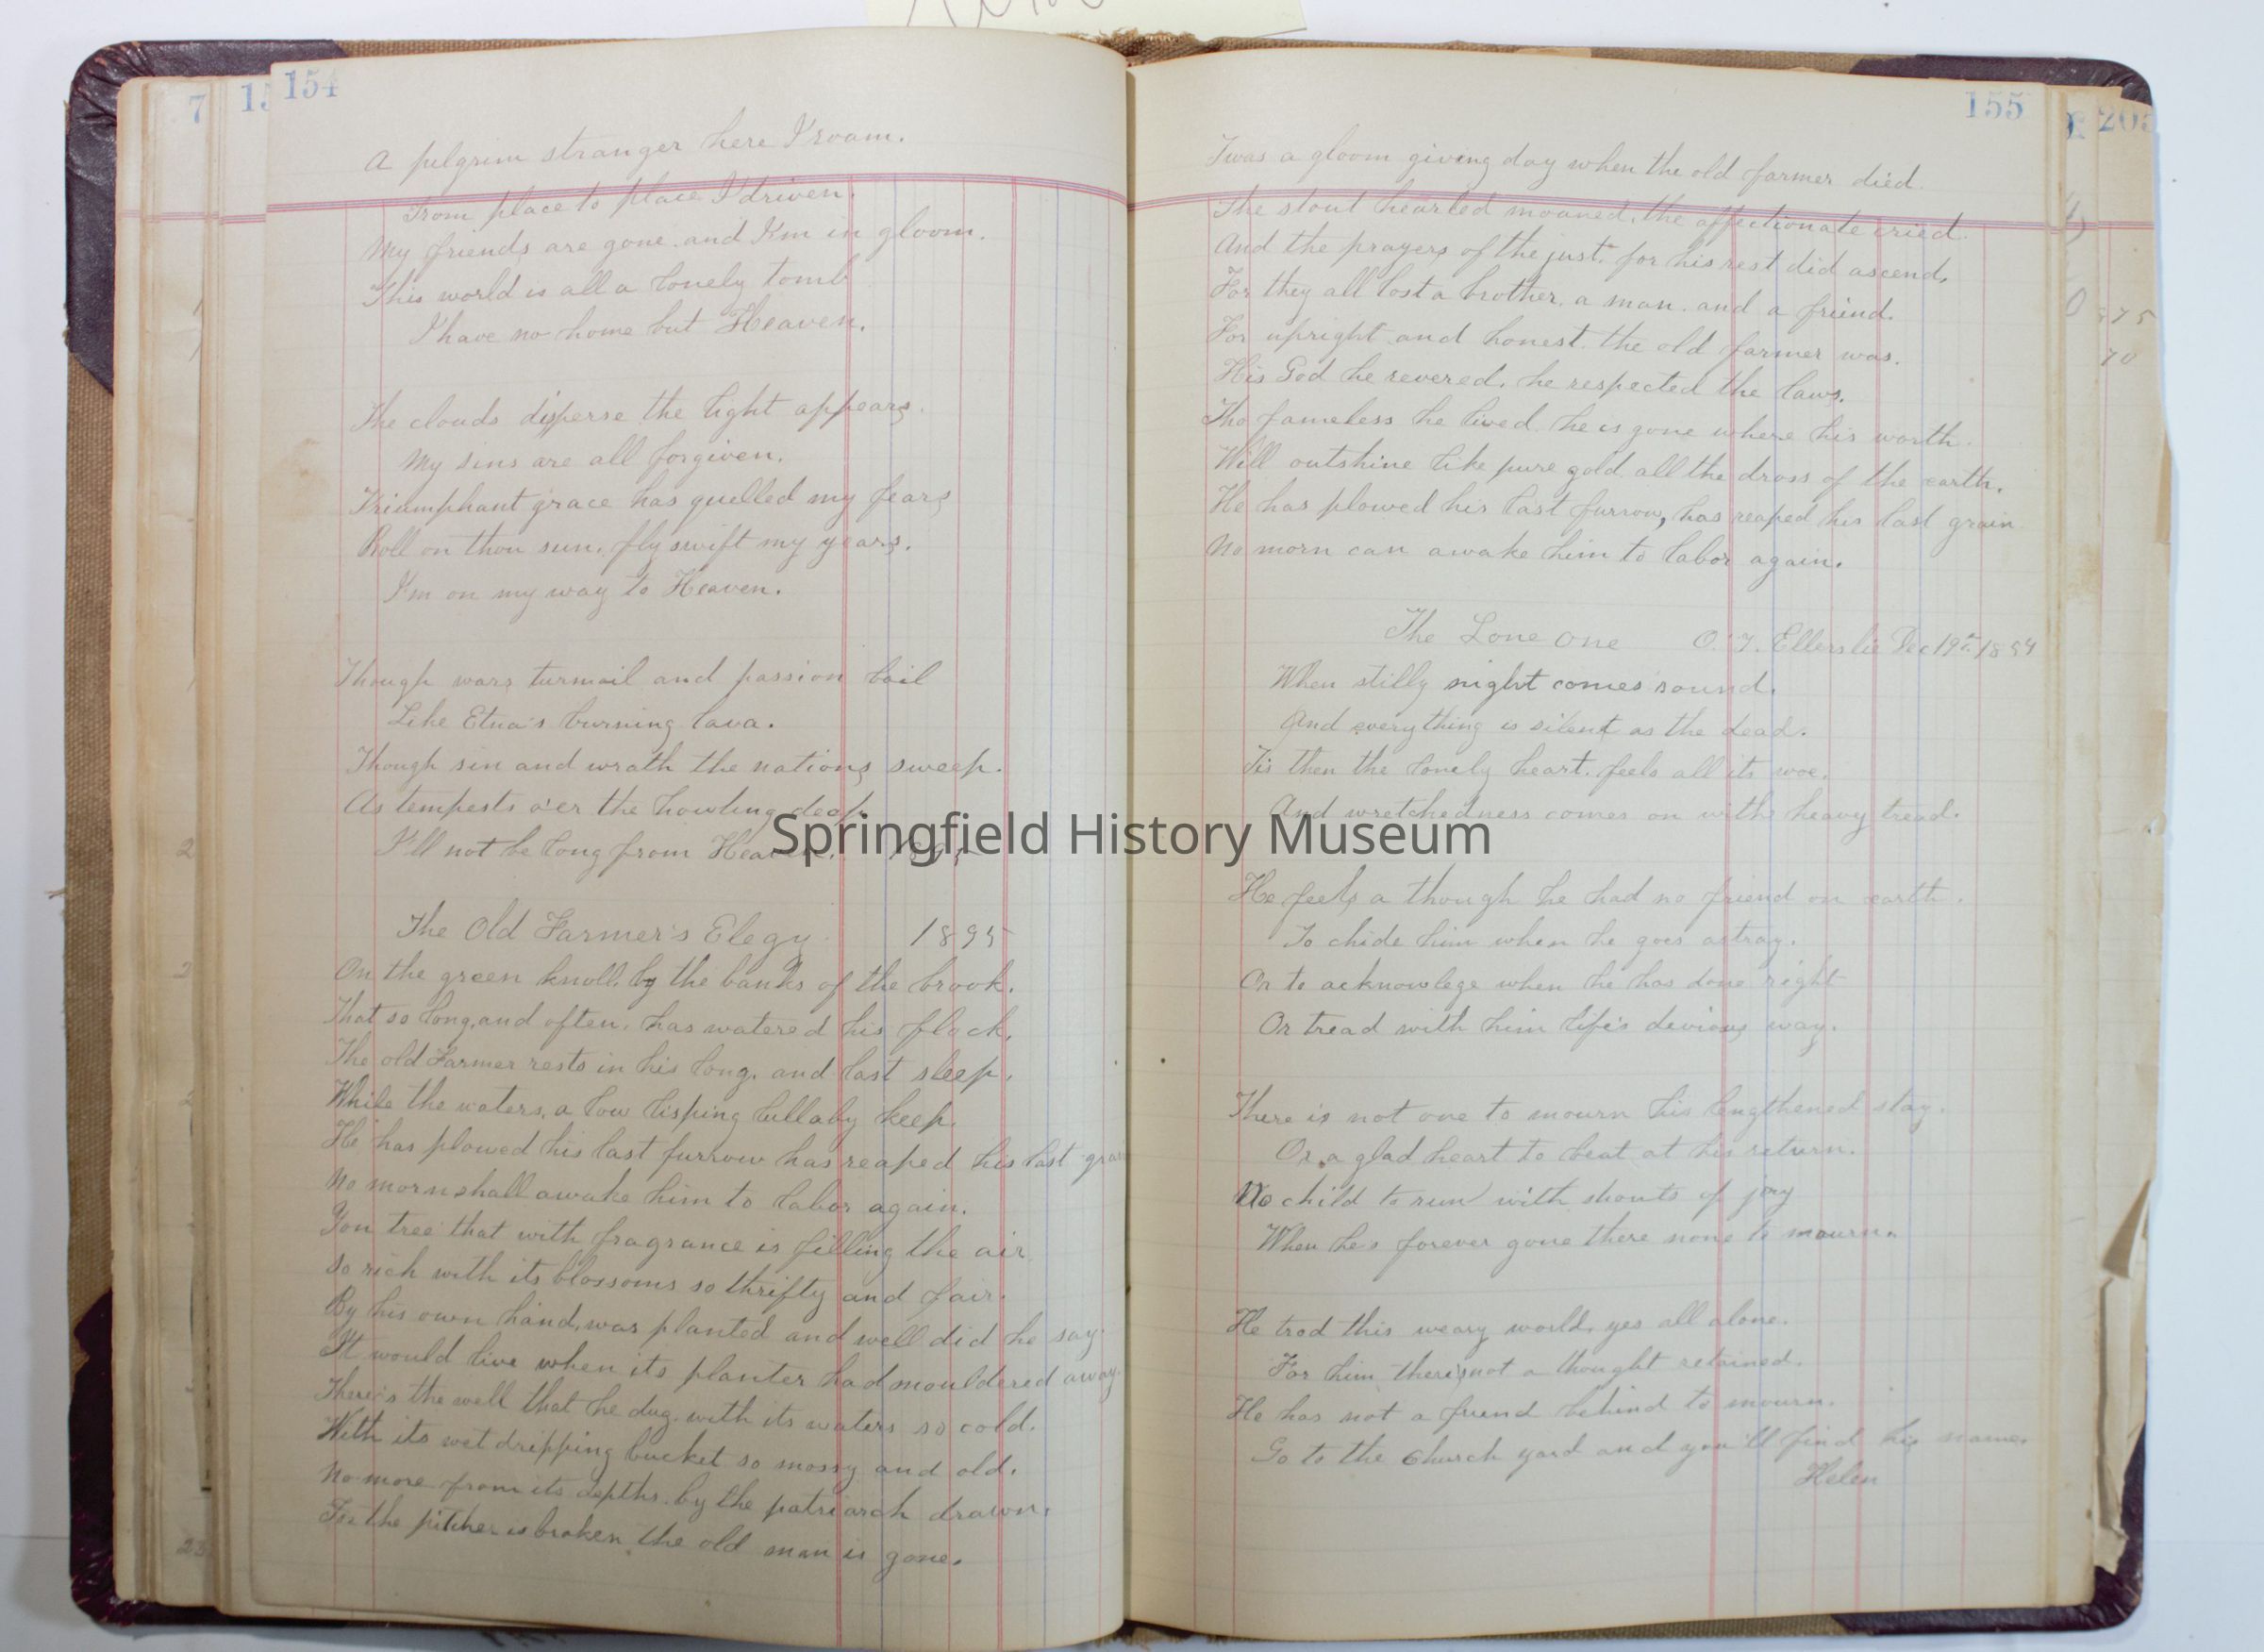 7
15
154
A pilgrim stranger here I roam.
From place to place I'driven.
My friends are gone and I'm in gloom.
This world is all a lonely tomb
I have no home but Heaven.
The clouds disperse the light appears.
My sins are all forgiven.
Triumphant grace has quelled my fears
Roll on thou sun, fly swift my years.
I'm on my way to Heaven.
Though wars turmoil and passion bail
Like Etna's burning lava.
Though sin and wrath the nations sweep.
As tempests o'er the howling deep
I'll not be long from Heaven. 1895
The Old Farmer's Elegy 1895
On the green knoll, by the banks of the brook.
That so long, and often, has watered his flock,
The old Farmer rests in his long, and last sleep,
While the waters, a low lisping lullaby keep.
He has plowed his last furrow has reaped his last grai
No morn shall awake him to labor again.
Yon tree that with fragrance is filling the air
So rich with its blossoms so thrifty and fair.
By his own hand, was planted and well did he say
It would live when its planter had mouldered away
There's the well that he dug, with its waters so cold.
With its wet dripping bucket so mossy and old.
No more from its depths, by the patriarch drawn.
For the pitcher is broken the old man is gone.
155
203
Twas a gloom giving day when the old farmer died
The stout hearted moaned, the affectionate cried.
And the prayers of the just, for his rest did ascend,
For they all lost a brother, a man, and a friend.
For upright and honest, the old farmer was.
His God he revered, he respected the laws.
Tho fameless he lived, he is gone where his worth.
Will outshine like pure gold all the dross of the earth.
He has plowed his last furrow, has reaped his last grain
No morn can awake him to labor again.
The Lone One O. T. Ellerslie Dec 19th 1854
When stilly night comes round.
And everything is silent as the dead.
Tis then the lonely heart, feels all its woe.
And wretchedness comes on with heavy tread.
He feels a though he had no friend on earth.
To chide him when he goes astray.
Or to acknowlege when he has done right
Or tread with him life's devious way.
There is not one to mourn his lengthened stay.
Or a glad heart to beat at his return.
No child to run with shouts of joy
When he's forever gone there none to mourn.
He trod this weary world, yes all alone.
For him there is not a thought retained.
He has not a friend behind to mourn.
Go to the Church yard and you'll find his name.
Helen
75
70
Springfield History Museum